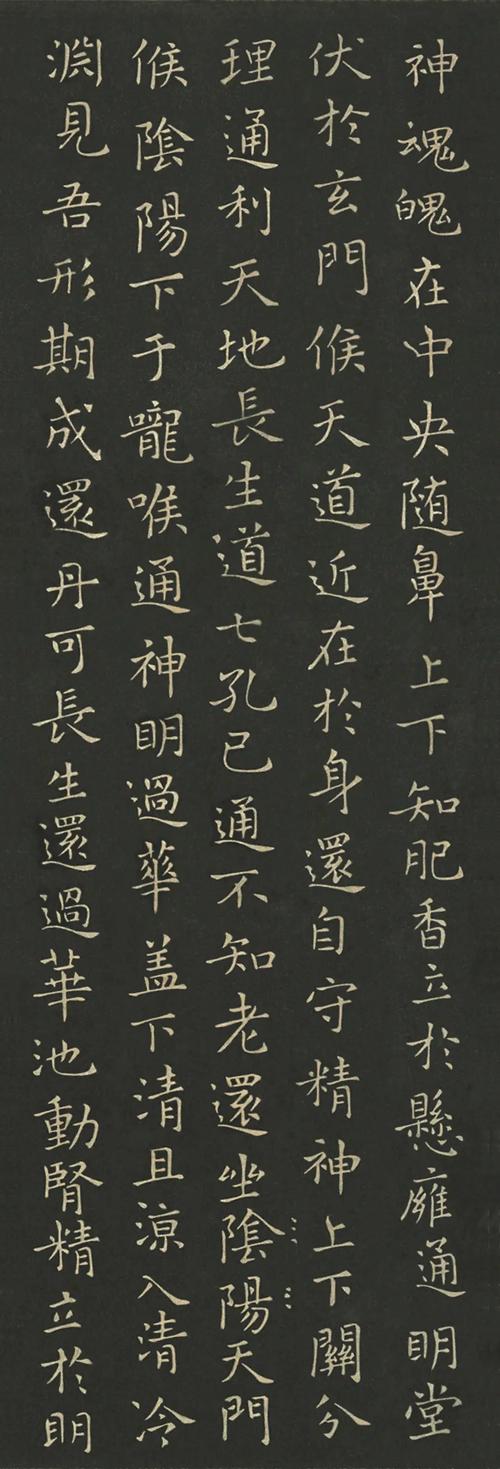 神魂魄在中央随鼻上下知肥香立於懸廱通眀堂
伏於玄門候天道近在於身還自守精神上下關分
理通利天地長生道七孔已通不知老還坐陰陽天門
候陰陽下于嚨喉通神眀過華盖下清且涼入清冷
淵見吾形期成還丹可長生還過華池動腎精立於眀